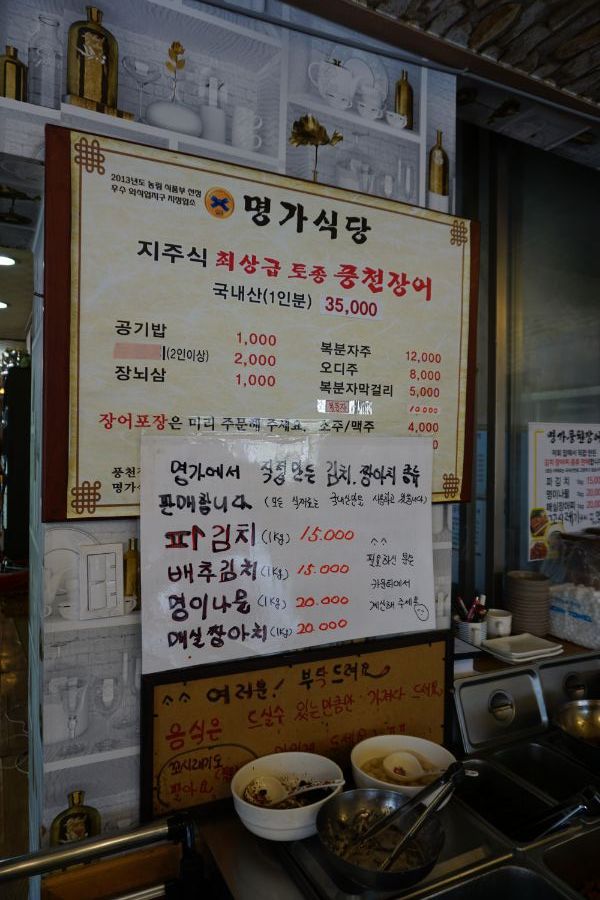 2013년도 농림 식품부 선정
우수 외식업지구 지정업소
명가식당
지주식 최상급 토종 풍천장어
국내산(1인분) 35,000
공기밥 1,000
(2인이상) 2,000
장뇌삼 1,000
복분자주 12,000
오디주 8,000
복분자막걸리 5,000
10,000
장어포장은 미리 주문해 주세요.
소주/맥주 4,000
풍천
명가
명가에서 직접 만든 김치, 짱아치 종류
판매합니다 (모든 식재료는 국내산만을 사용하고 있습니다)
파김치 (1Kg) 15.000
배추김치 (1Kg) 15.000
명이나물 (1Kg) 20.000
매실짱아치 (1Kg) 20.000
^^
필요하신 분은
카운터에서
계산해 주세요
^^ 여러분! 부탁드려요
음식은 드실수 있는만큼만 가져다 드세요
꼬시래기도
팔아요
명가풍천장어
파김치 15,000
명이나물 20,000
매실장아찌 20,000